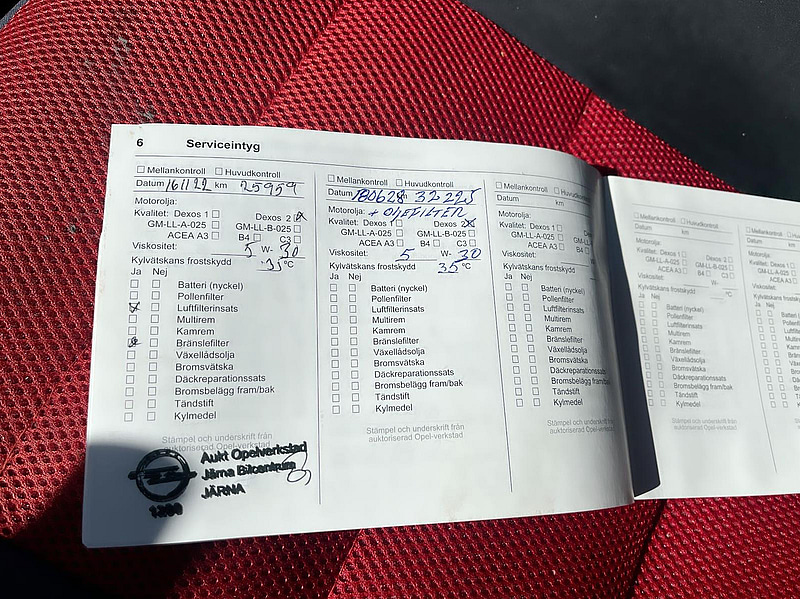 6 Serviceintyg
Mellankontroll Huvudkontroll
Datum 161122 km 25959
Motorolja:
Kvalitet: Dexos 1 Dexos 2
GM-LL-A-025 GM-LL-B-025
ACEA A3 B4 C3
Viskositet: 5 W- 30
Kylvätskans frostskydd °C
Ja Nej
Batteri (nyckel)
Pollenfilter
Luftfilterinsats
Multirem
Kamrem
Bränslefilter
Växellådsolja
Bromsvätska
Däckreparationssats
Bromsbelägg fram/bak
Tändstift
Kylmedel
Stämpel och underskrift från
auktoriserad Opel-verkstad
Aukt Opelverkstad
Järna Bilcentrum
JÄRNA
1290
Mellankontroll Huvudkontroll
Datum 180628 32225
Motorolja: + OLJEFILTER
Kvalitet: Dexos 1 Dexos 2
GM-LL-A-025 GM-LL-B-025
ACEA A3 B4 C3
Viskositet: 5 W- 30
Kylvätskans frostskydd 35 °C
Ja Nej
Batteri (nyckel)
Pollenfilter
Luftfilterinsats
Multirem
Kamrem
Bränslefilter
Växellådsolja
Bromsvätska
Däckreparationssats
Bromsbelägg fram/bak
Tändstift
Kylmedel
Stämpel och underskrift från
auktoriserad Opel-verkstad
Mellankontroll
Datum km
Motorolja:
Kvalitet: Dexos 1
GM-LL-A-025
ACEA A3
Viskositet:
Kylvätskans frostskydd
Ja Nej
Batteri (nyckel)
Pollenfilter
Luftfilterinsats
Multirem
Kamrem
Bränslefilter
Växellådsolja
Bromsvätska
Däckreparationssats
Bromsbelägg fram/bak
Tändstift
Kylmedel
Stämpel och underskrift från
auktoriserad Opel-verkstad
Mellankontroll Huvudkontroll
Datum km
Motorolja:
Kvalitet: Dexos 1 Dexos 2
GM-LL-A-025 GM-LL-B-025
ACEA A3 B4 C3
Viskositet: W-
Kylvätskans frostskydd °C
Ja Nej
Batteri (nyckel)
Pollenfilter
Luftfilterinsats
Multirem
Kamrem
Bränslefilter
Växellådsolja
Bromsvätska
Däckreparationssats
Bromsbelägg fram/bak
Tändstift
Kylmedel
Stämpel och underskrift från
auktoriserad Opel-verkstad
Mellankontroll
Datum
Motorolja:
Kvalitet: Dexos 1
GM-LL-A-025
ACEA A3
Viskositet:
Kylvätskans
Ja Nej